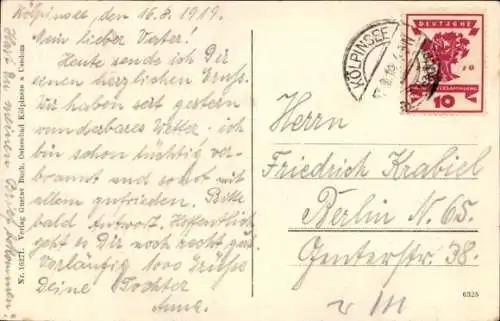 Kölpinsee, den 16.8.1919.
Mein lieber Vater!
Heute sende ich Dir
einen herzlichen Gruß.
Wir haben seit gestern
wunderbares Wetter. ich
bin schon tüchtig ver-
brannt und sonst mit
allem zufrieden. Bitte
bald Antwort. Hoffentlich
geht es Dir noch recht gut.
Vorläufig 1000 Grüße
Deine Tochter
Anna.
Hast Du meinen Brief bekommen?
Nr. 16271. Verlag Gustav Buch, Ostseebad Kölpinsee a Usedom
KÖLPINSEE
DEUTSCHE
10
Herrn
Friedrich Krabiel
Berlin N. 65.
Genterstr 38.
v III
6325